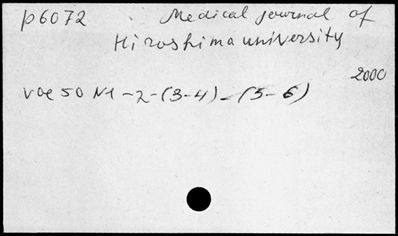 p6072 Medical journal of
Hiroshima university
2000
vol 50 N1-2-(3-4)-(5-6)